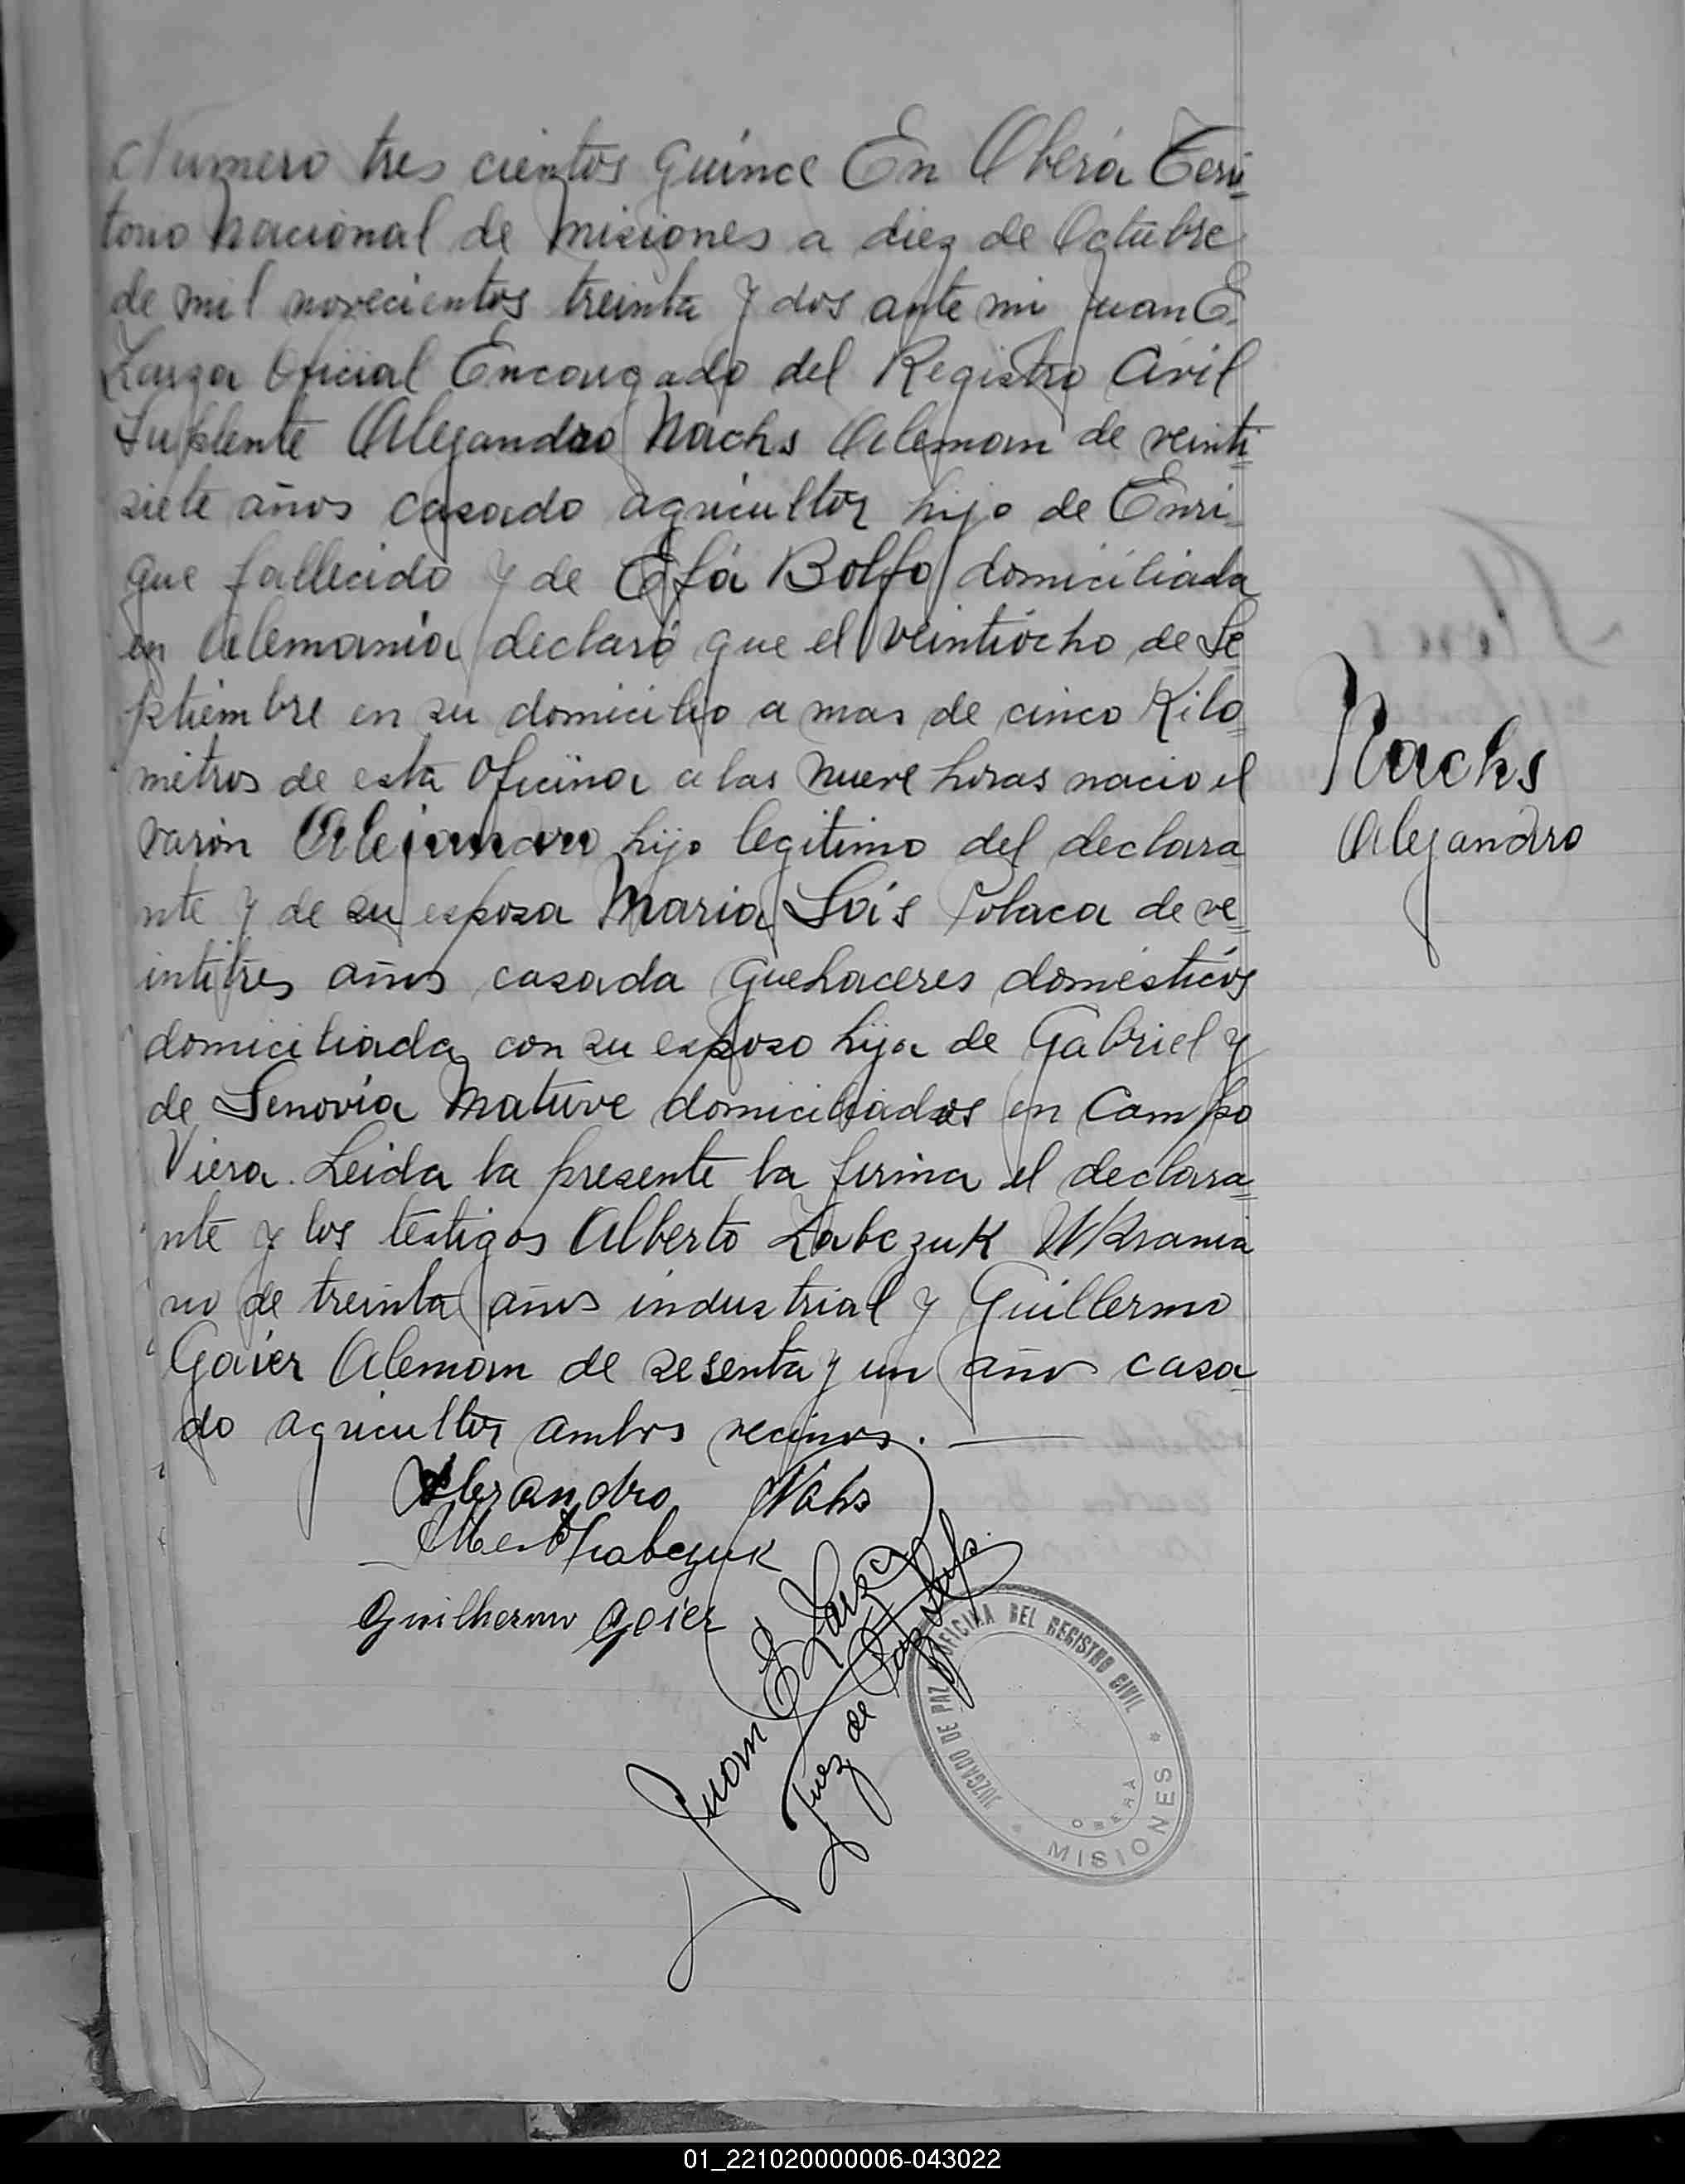 Numero tres cientos quince En Oberá Terri=
torio Nacional de Misiones a diez de Octubre
de mil novecientos treinta y dos ante mi Juan E.
Zarza Oficial Encargado del Registro Civil
Suplente Alejandro Nachs Aleman de veinti=
siete años casado agricultor hijo de Enri=
que fallecido y de Efa Bolfo domiciliada
en Alemania declaró que el veintiocho de Se=
ptiembre en su domicilio a mas de cinco Kilo=
metros de esta Oficina a las nueve horas nacio el
varón Alejandro hijo legitimo del declara=
nte y de su esposa Maria Sois Polaca de ve=
intitres años casada quehaceres domésticos
domiciliada con su esposo hija de Gabriel y
de Senovia Matuve domiciliados en Campo
Viera. Leida la presente la firma el declara=
nte y los testigos Alberto Zabczuk Ukrania
no de treinta años industrial y Guillermo
Gaier Aleman de sesenta y un año casa=
do agricultor ambos vecinos.
Nachs
Alejandro
Alexandro Nahs
Guilhermo Goier
Juan E Zarza
Juez de Paz Supl.
JUZGADO DE PAZ OFICINA DEL REGISTRO CIVIL
OBERA
* MISIONES *
01_221020000006-043022